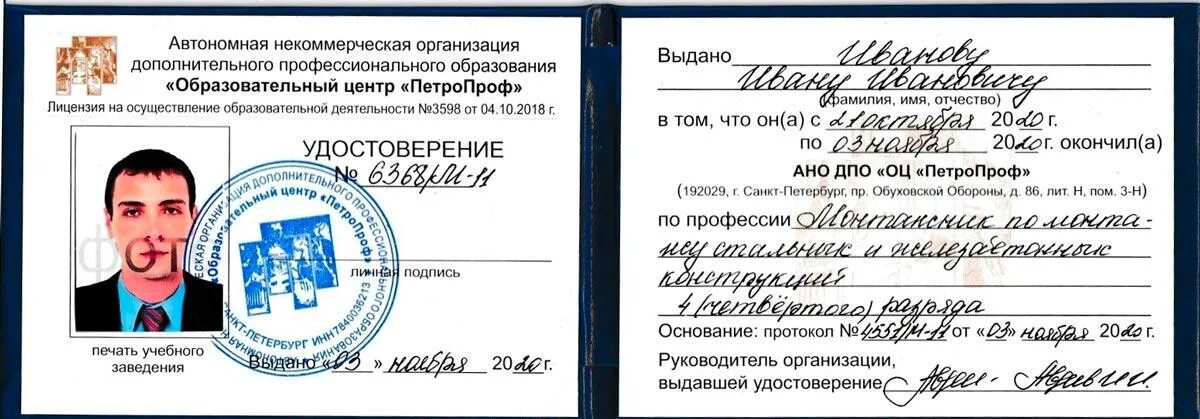 Автономная некоммерческая организация
дополнительного профессионального образования
«Образовательный центр «ПетроПроф»
Лицензия на осуществление образовательной деятельности №3598 от 04.10.2018 г.
УДОСТОВЕРЕНИЕ
№ 6368/М-11
ФОТ
личная подпись
печать учебного
заведения
Выдано «03» ноября 2020г.
ДОПОЛНИТЕЛЬНОГО ПРОФЕССИОНАЛЬНОГО ОБРАЗОВАНИЯ
«Образовательный центр «ПетроПроф»
САНКТ-ПЕТЕРБУРГ ИНН7840036213
Выдано Иванову
Ивану Ивановичу
(фамилия, имя, отчество)
в том, что он(а) с 21 октября 2020 г.
по 03 ноября 2020 г. окончил(а)
АНО ДПО «ОЦ «ПетроПроф»
(192029, г. Санкт-Петербург, пр. Обуховской Обороны, д. 86, лит. Н, пом. 3-Н)
по профессии Монтажник по монта-
жу стальных и железобетонных
конструкций
4 (четвёртого) разряда
Основание: протокол № 4551/М-11 от «03» ноября 2020г.
Руководитель организации,
выдавшей удостоверение